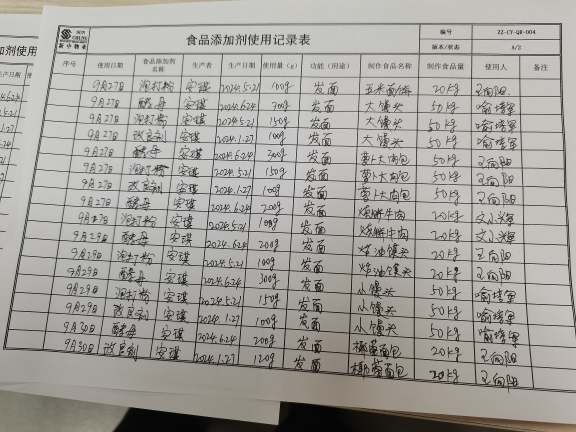 新中物业
食品添加剂使用记录表
编号 ZZ-CY-QR-004
版本/状态 A/2
序号 使用日期 食品添加剂名称 生产者 生产日期 使用量(g) 功能(用途) 制作食品名称 制作食品量 使用人 备注
9月27日 泡打粉 安琪 2024.5.21 100g 发面 玉米面饼 20kg 王向阳
9月27 酵母 安琪 2024.6.24 300g 发面 大馒头 50kg 喻培军
9月27 泡打粉 安琪 2024.5.21 150g 发面 大馒头 50kg 喻培军
9月27 改良剂 安琪 2024.1.27 100g 发面 大馒头 50kg 喻培军
9月27日 酵母 安琪 2024.6.24 300g 发面 萝卜大肉包 50kg 王向阳
9月27日 泡打粉 安琪 2024.5.21 150g 发面 萝卜大肉包 50kg 王向阳
9月27日 改良剂 安琪 2024.1.27 100g 发面 萝卜大肉包 50kg 王向阳
9月27日 酵母 安琪 2024.6.24 200g 发面 烧饼牛肉 20kg 文小辉
9月27日 泡打粉 安琪 2024.5.21 100g 发面 烧饼牛肉 20kg 文小辉
9月29日 酵母 安琪 2024.6.24 200g 发面 炸油馒头 20kg 王向阳
9月29日 泡打粉 安琪 2024.5.21 100g 发面 炸油馒头 20kg 王向阳
9月29日 酵母 安琪 2024.6.24 300g 发面 小馒头 50kg 喻培军
9月29日 泡打粉 安琪 2024.5.21 150g 发面 小馒头 50kg 喻培军
9月29日 改良剂 安琪 2024.1.27 100g 发面 小馒头 50kg 喻培军
9月30日 酵母 安琪 2024.6.24 200g 发面 椰蓉面包 20kg 王向阳
9月30日 改良剂 安琪 2024.1.27 120g 发面 椰蓉面包 20kg 王向阳